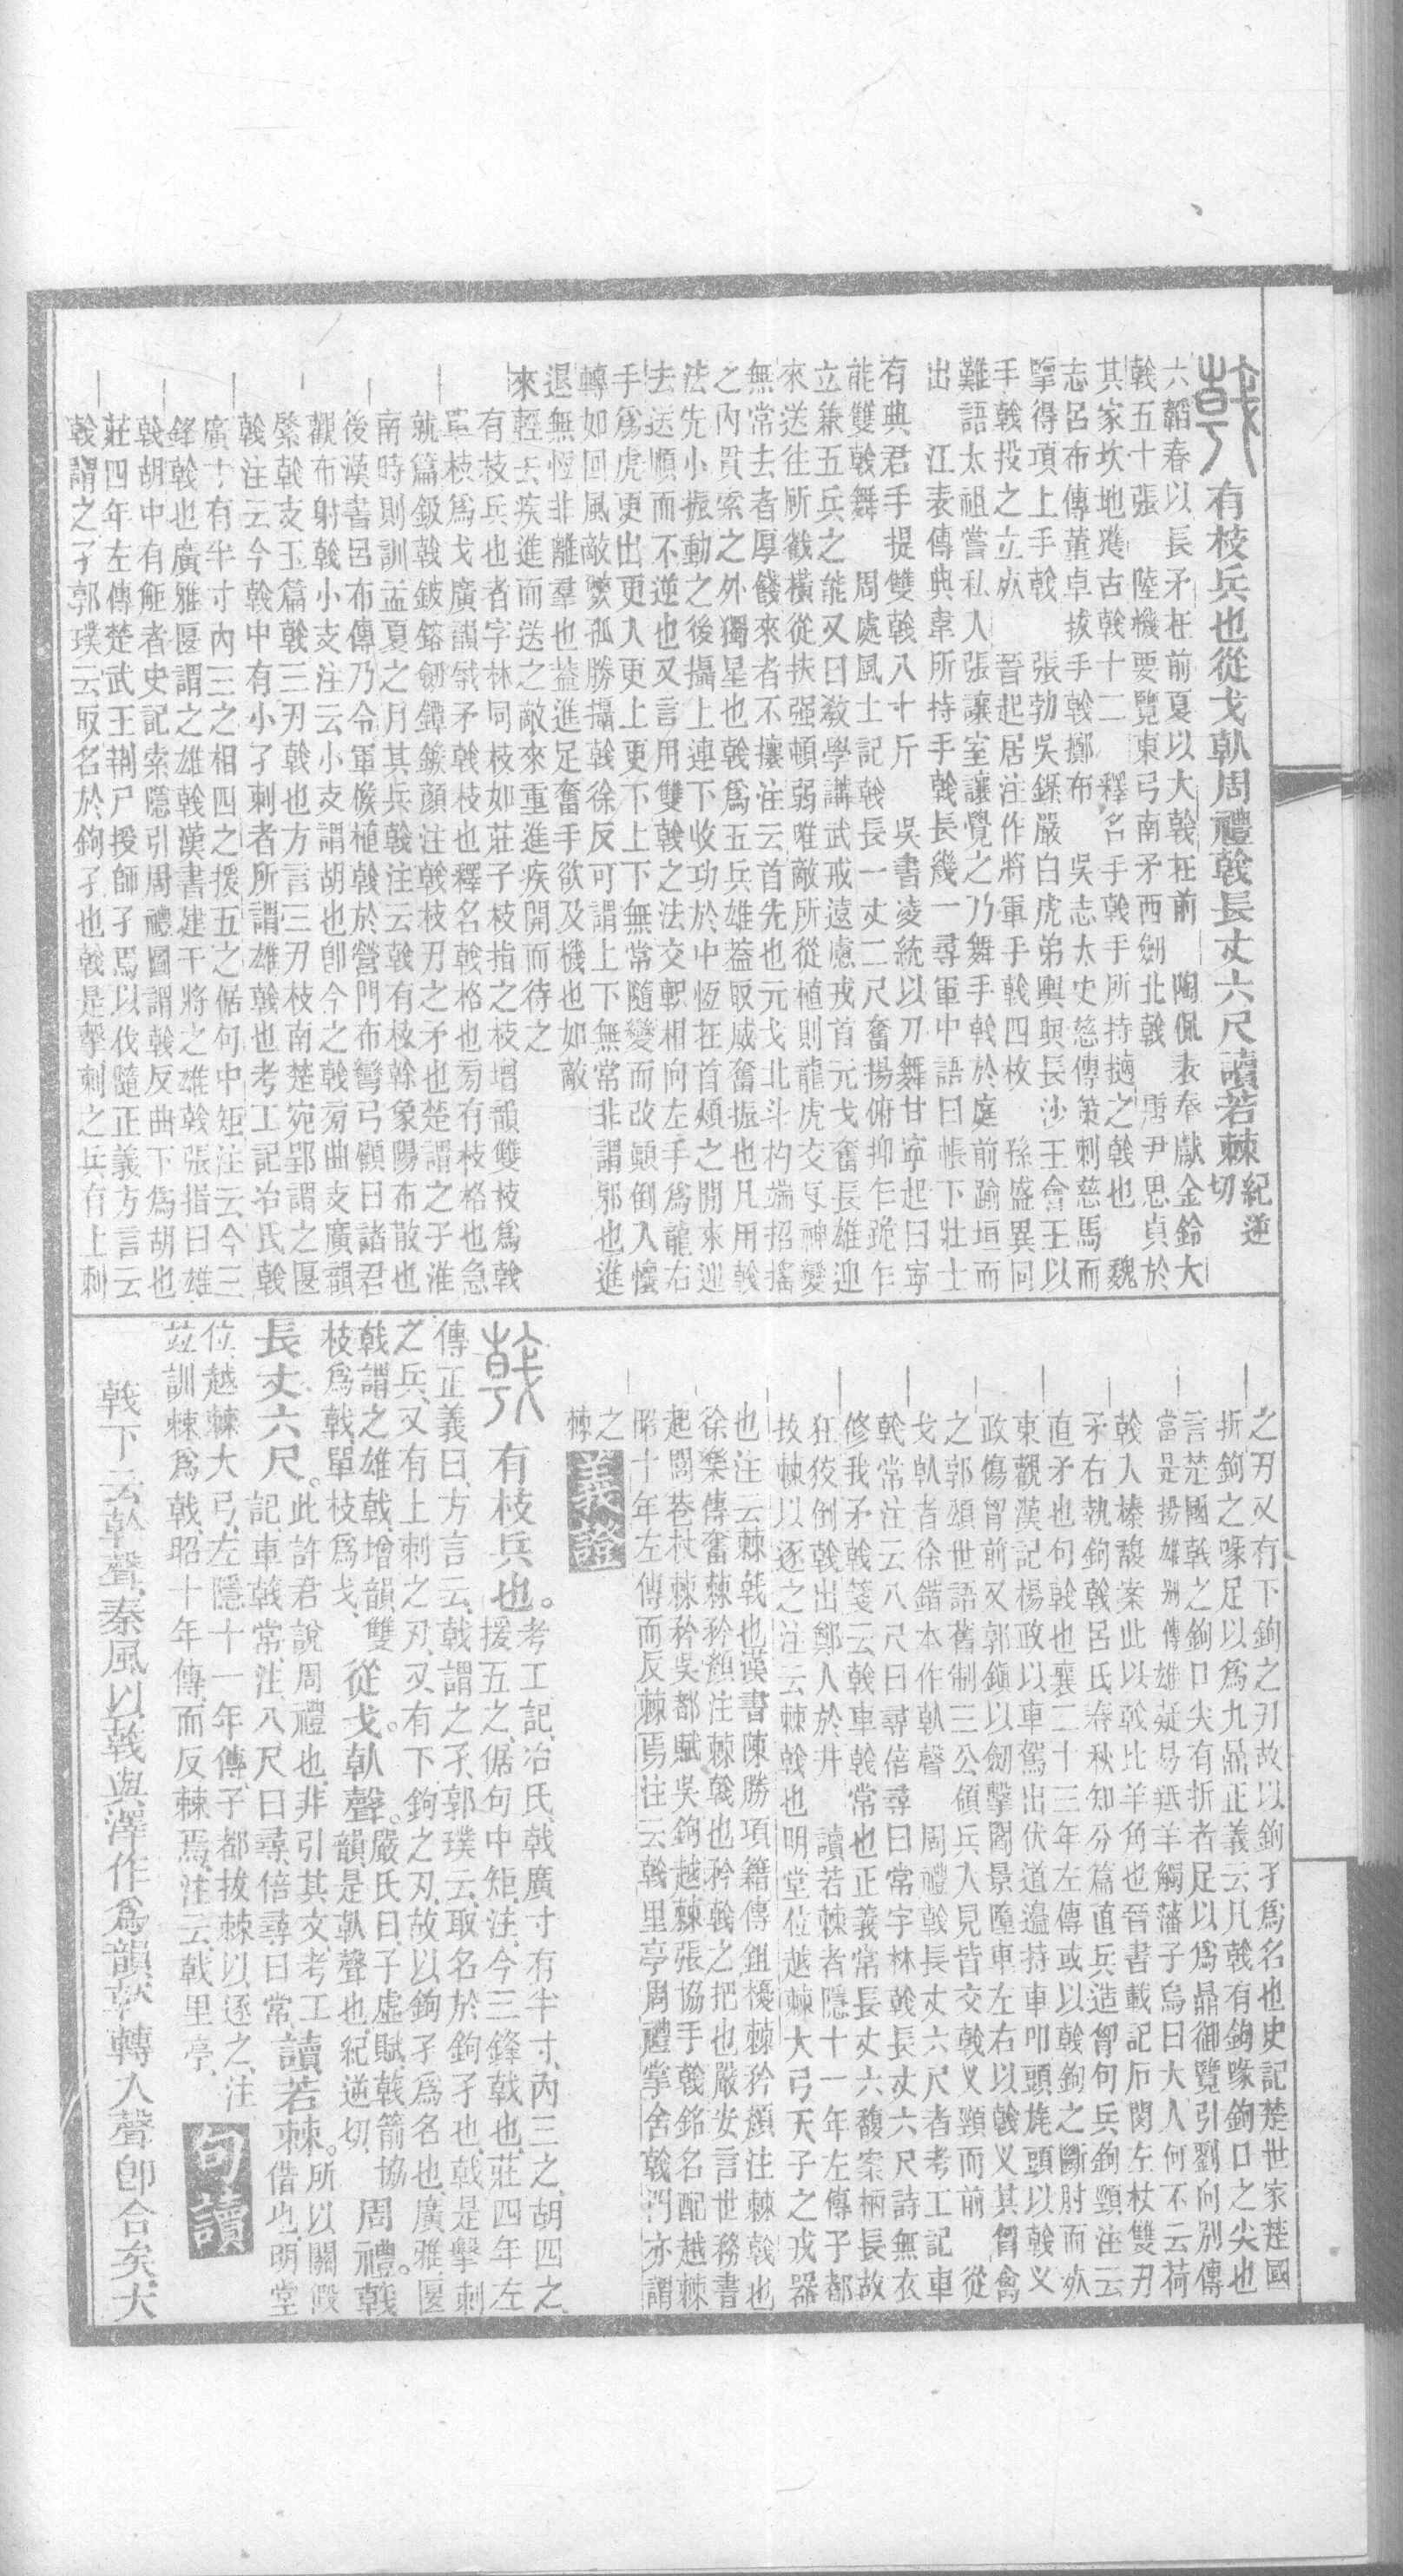 有枝兵也從戈倝周禮戟長丈六尺讀若棘紀逆切
六韜春以長矛在前夏以大戟在前 陶侃表奉獻金鈴大
戟五十張 陸機要覽東弓南矛西劒北戟 唐尹思貞於
其家坎地獲古戟十二 釋名手戟手所持擿之戟也 魏
志呂布傳董卓拔手戟擲布 吳志太史慈傳策刺慈馬而
擥得項上手戟 張勃吳錄嚴白虎弟輿與長沙王會王以
手戟投之立死 晉起居注作將軍手戟四枚 孫盛異同
雜語太祖嘗私入張讓室讓覺之乃舞手戟於庭前踰垣而
出 江表傳典韋所持手戟長幾一尋軍中語曰帳下壯士
有典君手提雙戟八十斤 吳書淩統以刀舞甘寧起曰寧
能雙戟舞 周處風土記戟長一丈二尺奮揚俯抑乍跪乍
立兼五兵之能又曰敎學講武戒遠慮戎首元戈奮長雄迎
來送往所戳橫從扶强頓弱唯敵所從植則龍虎交叉神變
無常去者厚餞來者不攘注云首先也元戈北斗杓端招搖
之內貫索之外獨星也戟爲五兵雄葢取威奮振也凡用戟
法先小振動之後攝上連下收功於中恆在首頰之開來迎
去送順而不逆也又言用雙戟之法交軹相向左手爲龍右
手爲虎更出更入更上更下上下無常隨變而改顚倒入懷
轉如回風敵繁孤勝攝戟徐反可謂上下無常非謂邪也進
退無恆非離羣也葢進足奮手欲及機也如敵
來輕兵疾進而送之敵來重進疾開而待之
有枝兵也者字林同枝如莊子枝指之枝增韻雙枝爲戟
單枝爲戈廣韻戟矛戟枝也釋名戟格也㫄有枝格也急
就篇鈒戟鈹鎔劒鐔鍭顏注戟枝刃之矛也楚謂之孑淮
南時則訓孟夏之月其兵戟注云戟有枝榦象陽布散也
後漢書呂布傳乃令軍候植戟於營門布彎弓顧曰諸君
觀布射戟小支注云小支謂胡也卽今之戟㫄曲支廣韻
綮戟支玉篇戟三刃戟也方言三刃枝南楚宛郢謂之匽
戟注云今戟中有小孑刺者所謂雄戟也考工記冶氏戟
廣寸有半寸內三之相四之援五之倨句中矩注云今三
鋒戟也廣雅匽謂之雄戟漢書建干將之雄戟張揖曰雄
戟胡中有䱥者史記索隱引周禮圖謂戟反曲下爲胡也
莊四年左傳楚武王荆尸授師孑焉以伐隨正義方言云
戟謂之孑郭璞云取名於鉤孑也戟是擊刺之兵有上刺
之刃又有下鉤之刃故以鉤孑爲名也史記楚世家楚國
折鉤之喙足以爲九鼎正義云凡戟有鉤喙鉤口之尖也
言楚國戟之鉤口尖有折者足以爲鼎御覽引劉向別傳
當是揚雄別傳雄疑易羝羊觸藩子烏曰大人何不云荷
戟入榛馥案此以戟比羊角也晉書載記石閔左杖雙刃
矛右執鉤戟呂氏春秋知分篇直兵造胷句兵鉤頸注云
直矛也句戟也襄二十三年左傳或以戟鉤之斷肘而死
東觀漢記楊政以車駕出伏道邉持車叩頭旄頭以戟叉
政傷胷前又郭鎭以劒擊閻景墮車左右以戟叉其胷禽
之郭頒世語舊制三公領兵入見皆交戟叉頸而前 從
戈倝者徐鍇本作倝聲 周禮戟長丈六尺者考工記車
戟常注云八尺曰尋倍尋曰常字林戟長丈六尺詩無衣
修我矛戟箋云戟車戟常也正義常長丈六馥案柄長故
狂狡倒戟出鄭人於井 讀若棘者隱十一年左傳子都
拔棘以逐之注云棘戟也明堂位越棘大弓天子之戎器
也注云棘戟也漢書陳勝項籍傳鉏櫌棘矜顏注棘戟也
徐樂傳奮棘矜顏注棘戟也矜戟之把也嚴安言世務書
起閭巷杖棘矜吳都賦吳鉤越棘張協手戟銘名配越棘
昭十年左傳而反棘焉注云戟里亭周禮掌舍戟門亦謂
之
棘 義證
有枝兵也。考工記冶氏戟廣寸有半寸、內三之、胡四之、
援五之、倨句中矩、注今三鋒戟也、莊四年左
傳正義曰、方言云、戟謂之孑、郭璞云、取名於鉤孑也、戟是擊刺
之兵、又有上刺之刃、又有下鉤之刃、故以鉤孑爲名也、廣雅、匽
戟謂之雄戟、增韻、雙
枝爲戟、單枝爲戈、從戈。倝聲。嚴氏曰、子虛賦、戟箭協
韻、是倝聲也、紀逆切、周禮。戟
長丈六尺。此許君說周禮也、非引其文、考工
記、車戟常、注、八尺曰尋、倍尋曰常、讀若棘。所以關假
借也、明堂
位、越棘大弓、左隱十一年傳、子都拔棘以逐之、注
竝訓棘爲戟、昭十年傳、而反棘焉、注云、戟里亭、 句讀
戟下云倝聲、秦風以戟與澤作爲韻、倝轉入聲卽合矣、大